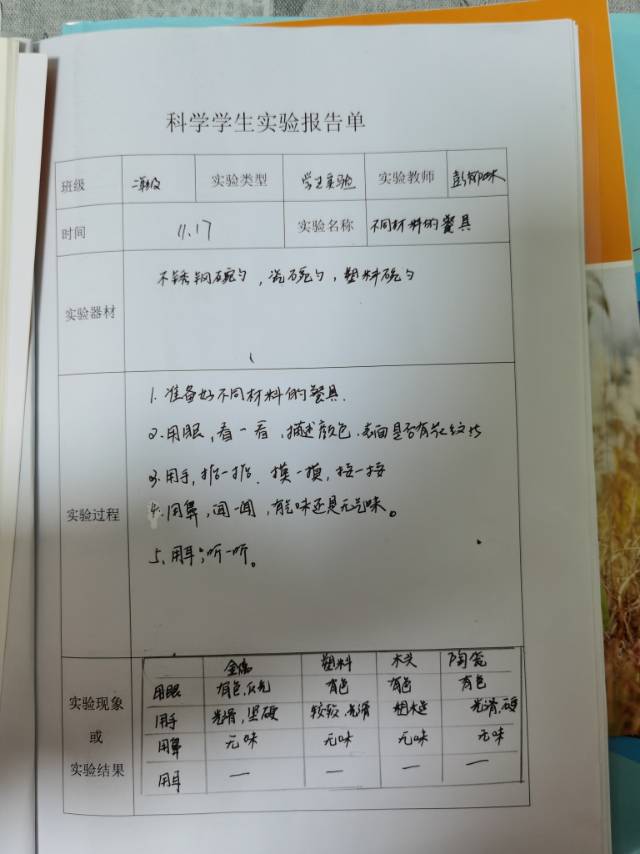 科学学生实验报告单
班级 二年级 实验类型 学生实验 实验教师
时间 11.17 实验名称 不同材料的餐具
实验器材 不锈钢碗勺，瓷碗勺，塑料碗勺
实验过程
1. 准备好不同材料的餐具.
2. 用眼，看一看，描述颜色.表面是否有花纹
3. 用手，掂一掂. 摸一摸，按一按
4. 用鼻，闻一闻，有气味还是无气味。
5. 用耳：听一听。
实验现象或实验结果
金属 塑料 木头 陶瓷
用眼 有色, 有色 有色 有色
用手 光滑，坚硬 较软，光滑 粗糙 光滑，硬
用鼻 无味 无味 无味 无味
用耳 — — — —